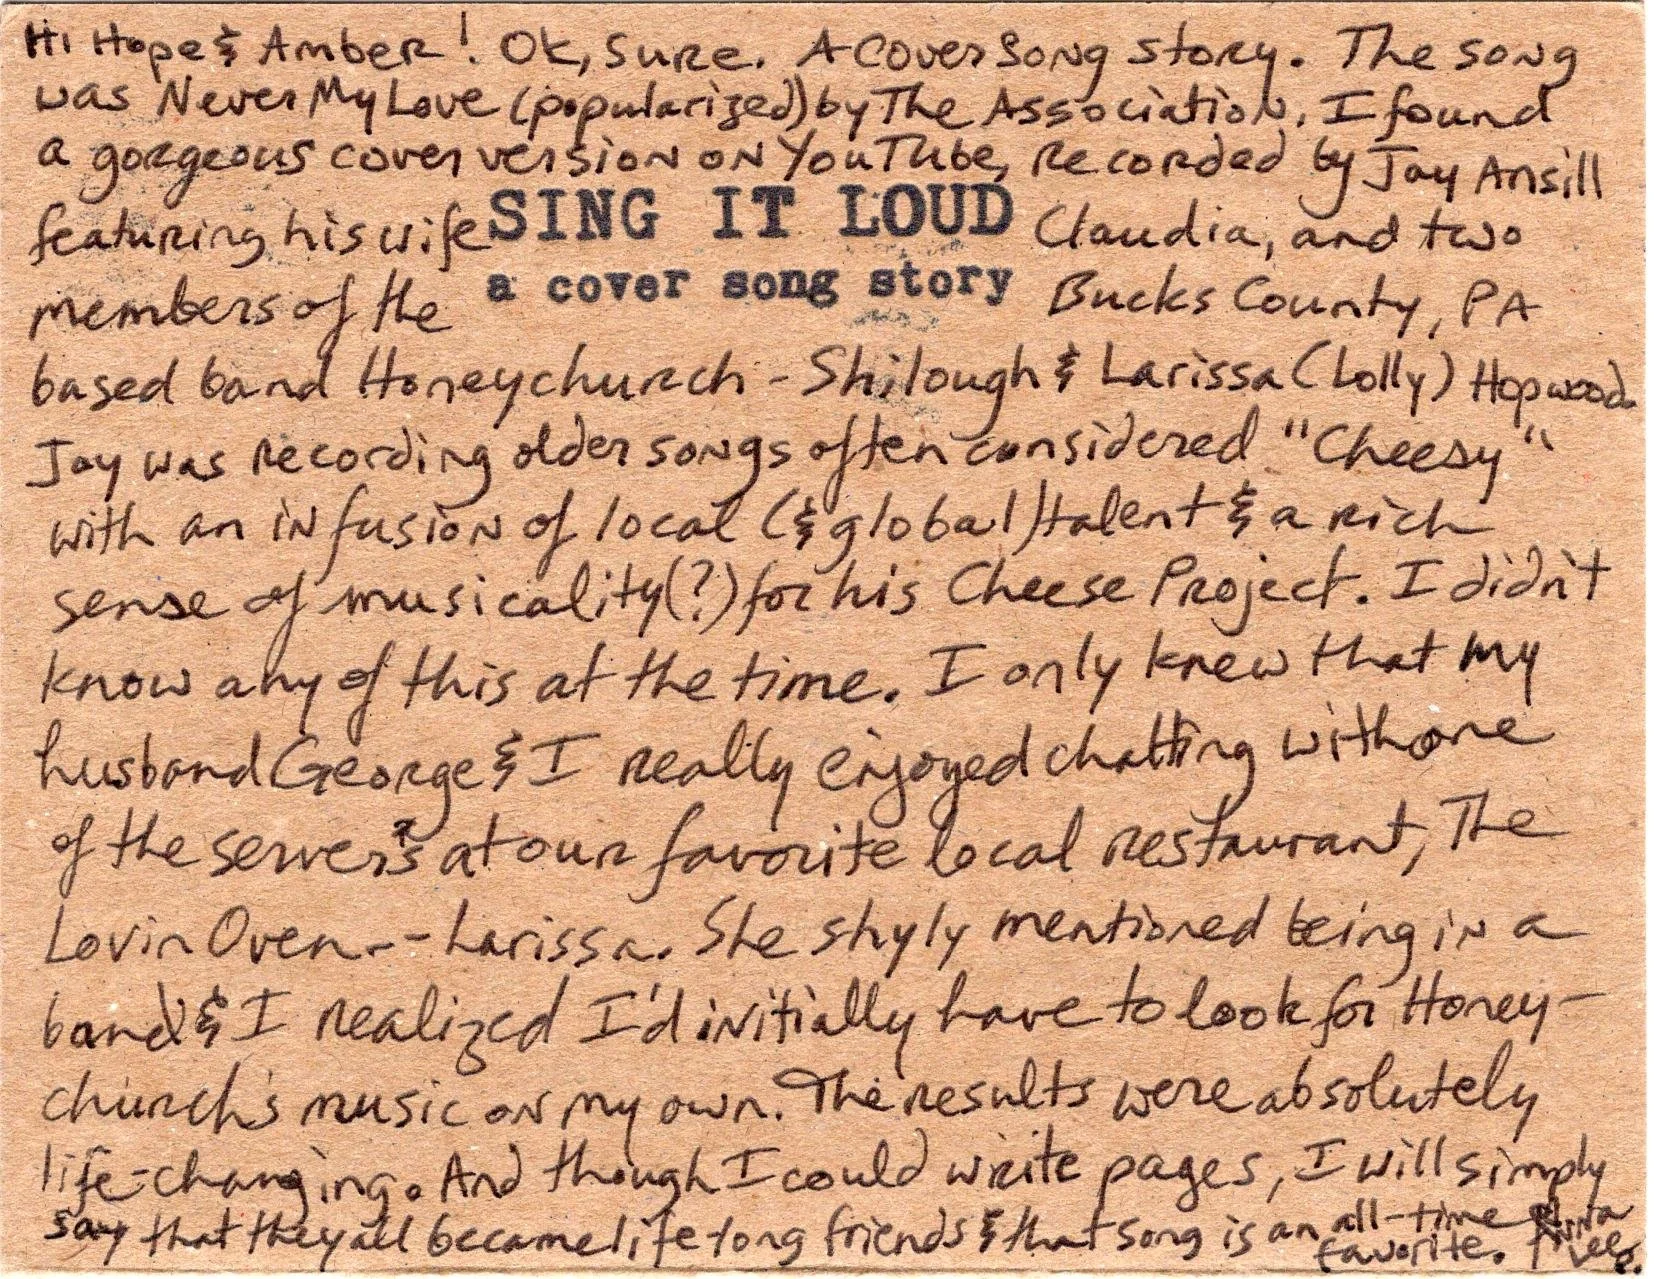 Hi Hope & Amber! Ok, Sure. A Cover Song story. The song
was Never My Love (popularized) by The Association. I found
a gorgeous cover version on YouTube, recorded by Jay Ansill
featuring his wife Claudia, and two
SING IT LOUD
a cover song story
members of the Bucks County, PA
based band Honeychurch - Shilough & Larissa (Lolly) Hopwood.
Jay was recording older songs often considered "Cheesy"
with an infusion of local (& global) talent & a rich
sense of musicality(?) for his Cheese Project. I didn't
know any of this at the time. I only knew that my
husband George & I really enjoyed chatting with one
of the servers at our favorite local restaurant, The
Lovin Oven -- Larissa. She shyly mentioned being in a
band & I realized I'd initially have to look for Honey-
church's music on my own. The results were absolutely
life-changing. And though I could write pages, I will simply
say that they all became life-long friends & that song is an all-time
favorite.